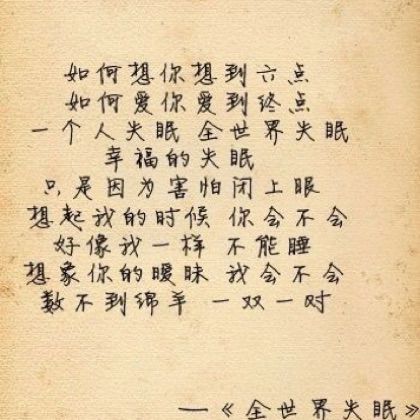 如何想你想到六点
如何爱你爱到终点
一个人失眠 全世界失眠
幸福的失眠
只是因为害怕闭上眼
想起我的时候 你会不会
好像我一样 不能睡
想象你的暧昧 我会不会
数不到绵羊 一双一对
—《全世界失眠》